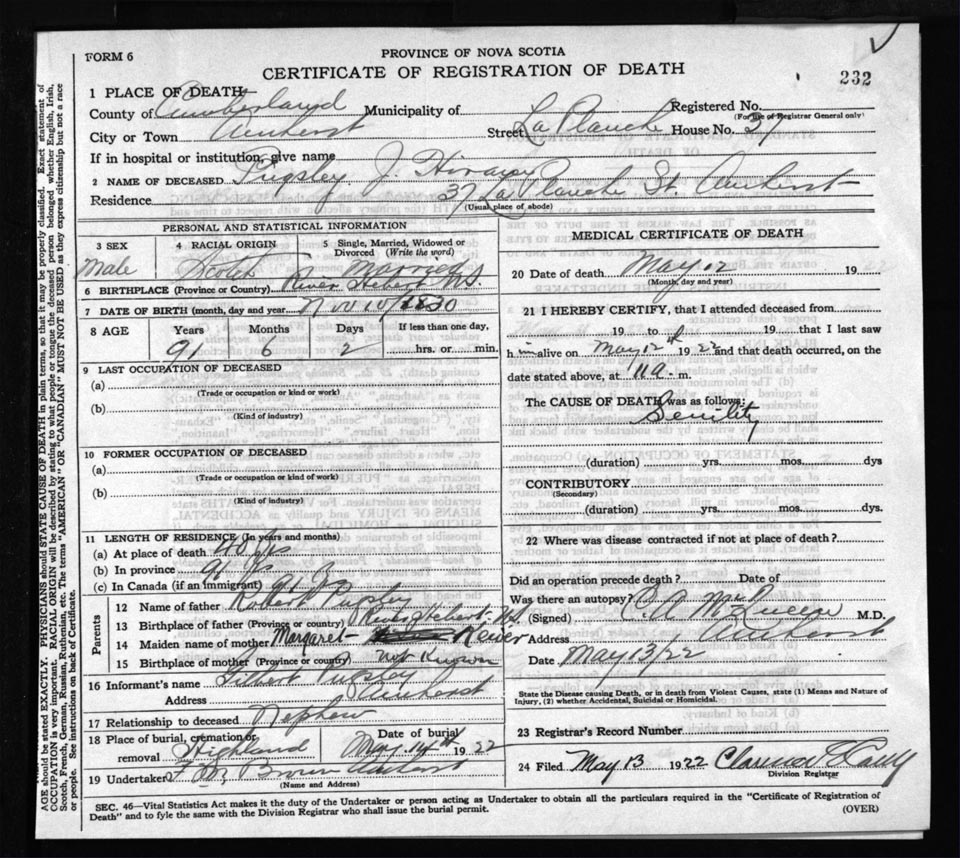 FORM 6
PROVINCE OF NOVA SCOTIA
CERTIFICATE OF REGISTRATION OF DEATH
232
1 PLACE OF DEATH
County of Cumberland Municipality of Registered No.
(For use of Registrar General only)
City or Town Amherst Street La Planche House No. 37
If in hospital or institution, give name
2 NAME OF DECEASED Pugsley J. Hiram
Residence 37 La Planche St. Amherst
(Usual place of abode)
PERSONAL AND STATISTICAL INFORMATION
3 SEX 4 RACIAL ORIGIN 5 Single, Married, Widowed or Divorced (Write the word)
Male Scotch Married
6 BIRTHPLACE (Province or Country) River Hebert N.S.
7 DATE OF BIRTH (month, day and year) Nov 10/1830
8 AGE Years Months Days If less than one day,
91 6 2 hrs. or min.
9 LAST OCCUPATION OF DECEASED
(a)
(Trade or occupation or kind or work)
(b)
(Kind of industry)
10 FORMER OCCUPATION OF DECEASED
(a)
(Trade or occupation or kind or work)
(b)
(Kind of industry)
11 LENGTH OF RESIDENCE (In years and months)
(a) At place of death 40 yrs
(b) In province 91 yrs
(c) In Canada (if an immigrant) 91 yrs
Parents
12 Name of father Robert Pugsley
13 Birthplace of father (Province or country) River Hebert N.S.
14 Maiden name of mother Margaret
15 Birthplace of mother (Province or country) not Known
16 Informant's name Pugsley
Address Amherst
17 Relationship to deceased Nephew
18 Place of burial, cremation or removal Highland Date of burial May 14th 1922
19 Undertaker Brown Amherst
(Name and Address)
MEDICAL CERTIFICATE OF DEATH
20 Date of death May 12 19
(Month, day and year)
21 I HEREBY CERTIFY, that I attended deceased from
19 to 19 that I last saw
h im alive on May 12th 1922 and that death occurred, on the
date stated above, at 11 a. m.
The CAUSE OF DEATH was as follows:
Senility
(duration) yrs. mos. dys
CONTRIBUTORY
(Secondary)
(duration) yrs. mos. dys.
22 Where was disease contracted if not at place of death?
Did an operation precede death? Date of
Was there an autopsy?
(Signed) C A McQueen M.D.
Address Amherst
Date May 13/22
State the Disease causing Death, or in death from Violent Causes, state (1) Means and Nature of
Injury, (2) whether Accidental, Suicidal or Homicidal.
23 Registrar's Record Number
24 Filed May 13 1922
Division Registrar
SEC. 46—Vital Statistics Act makes it the duty of the Undertaker or person acting as Undertaker to obtain all the particulars required in the "Certificate of Registration of
Death" and to fyle the same with the Division Registrar who shall issue the burial permit. (OVER)
AGE should be stated EXACTLY. PHYSICIANS should STATE CAUSE OF DEATH in plain terms, so that it may be properly classified. Exact statement of
OCCUPATION is very important. RACIAL ORIGIN will be described by stating to what people or tongue the deceased person belonged whether English, Irish,
Scotch, French, German, Russian, Ruthenian, etc. The terms "AMERICAN" OR "CANADIAN" MUST NOT BE USED as they express citizenship but not a race
or people. See instructions on back of Certificate.